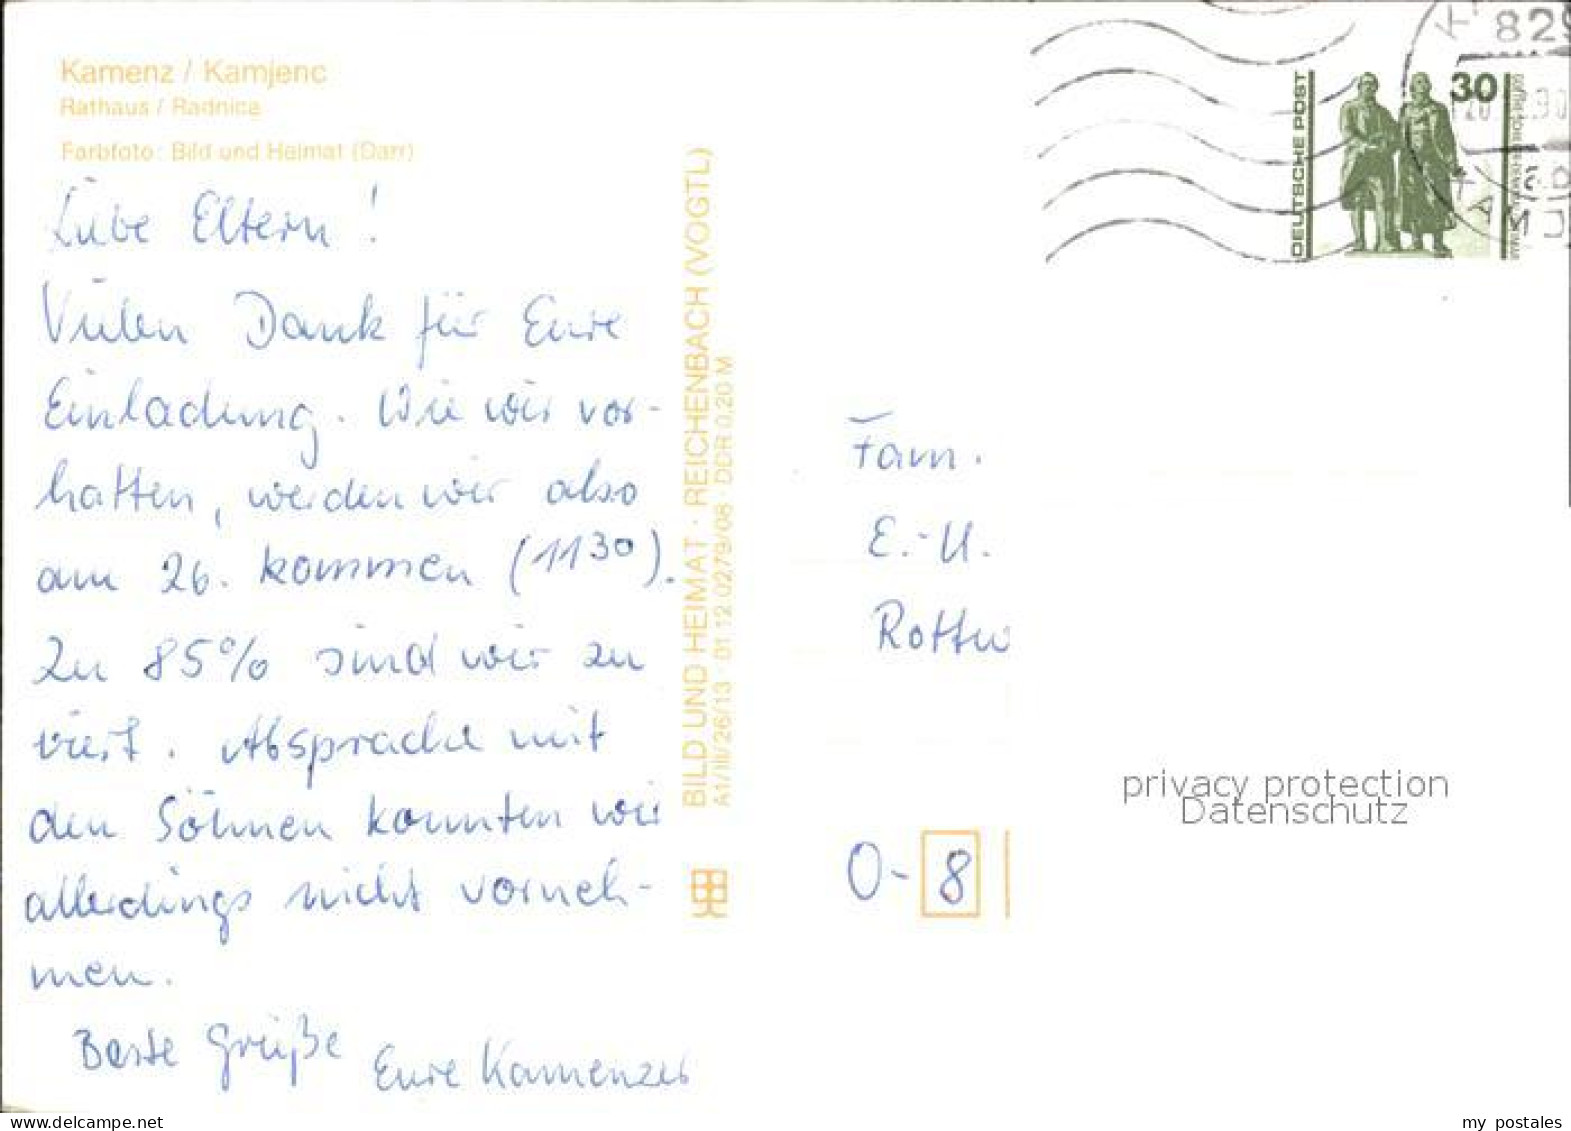 Kamenz / Kamjenc
Rathaus / Radnica
Farbfoto: Bild und Heimat (Darr)
Liebe Eltern!
Vielen Dank für Eure
Einladung. Wie wir vor-
hatten, werden wir also
am 26. kommen (11³⁰).
Zu 85% sind wir zu
viert. Absprache mit
den Söhnen konnten wir
allerdings nicht vorneh-
men.
Beste Grüße
Eure Kamenzer
BILD UND HEIMAT · REICHENBACH (VOGTL)
A1/III/26/13 · 01 12 02 79/08 · DDR 0,20 M
DEUTSCHE POST
30
829
Fam.
E.-U.
Rottw
O-8
privacy protection
Datenschutz
my postales